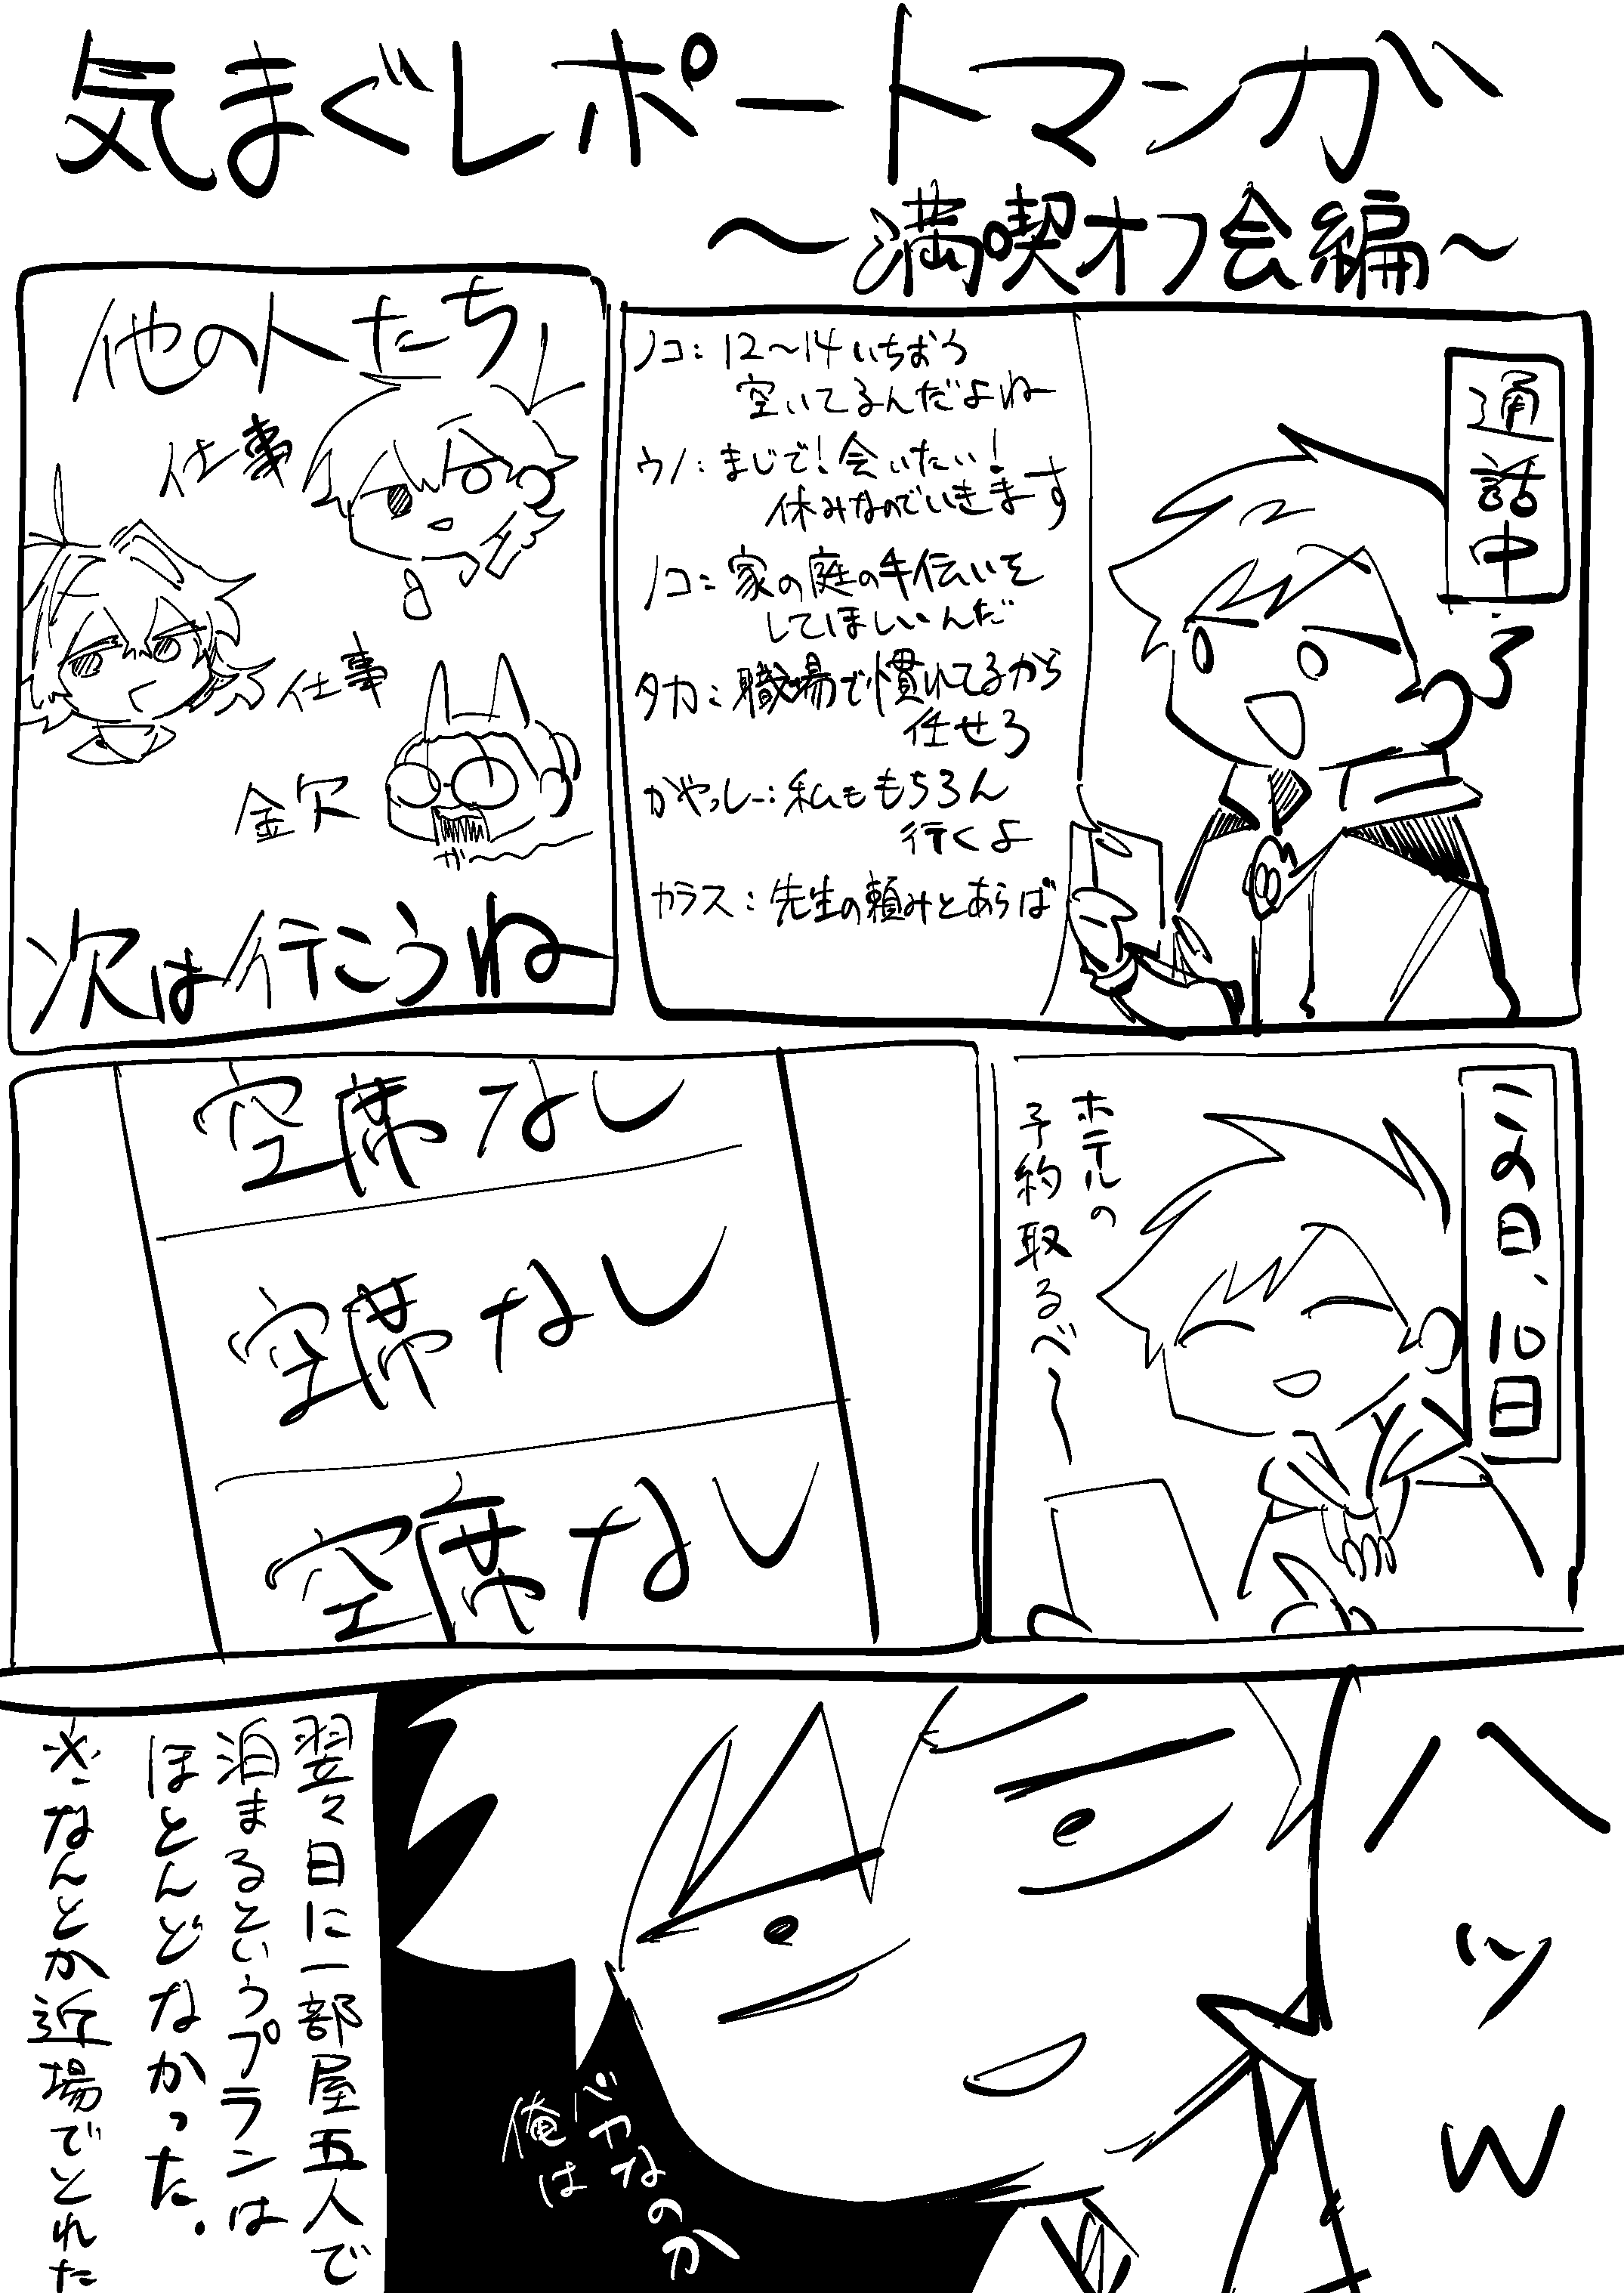 気まぐレポートマンガ
～満喫オフ会編～
通話中
ノコ：12～14いちおう
空いてるんだよね
ウノ：まじで！会いたい！
休みなのでいきます
ノコ：家の庭の手伝いを
してほしいんだ
タカ：職場で慣れてるから
任せろ
がやっしー：私ももちろん
行くよ
カラス：先生の頼みとあらば
他の人たち
仕事
仕事
金欠
が～
次は行こうね
この日、10日
ホテルの
予約取るべ～
空席なし
空席なし
空席なし
ハッw
バカなのか
俺は
翌々日に一部屋五人で
泊まるというプランは
ほとんどなかった。
※なんとか近場でとれた